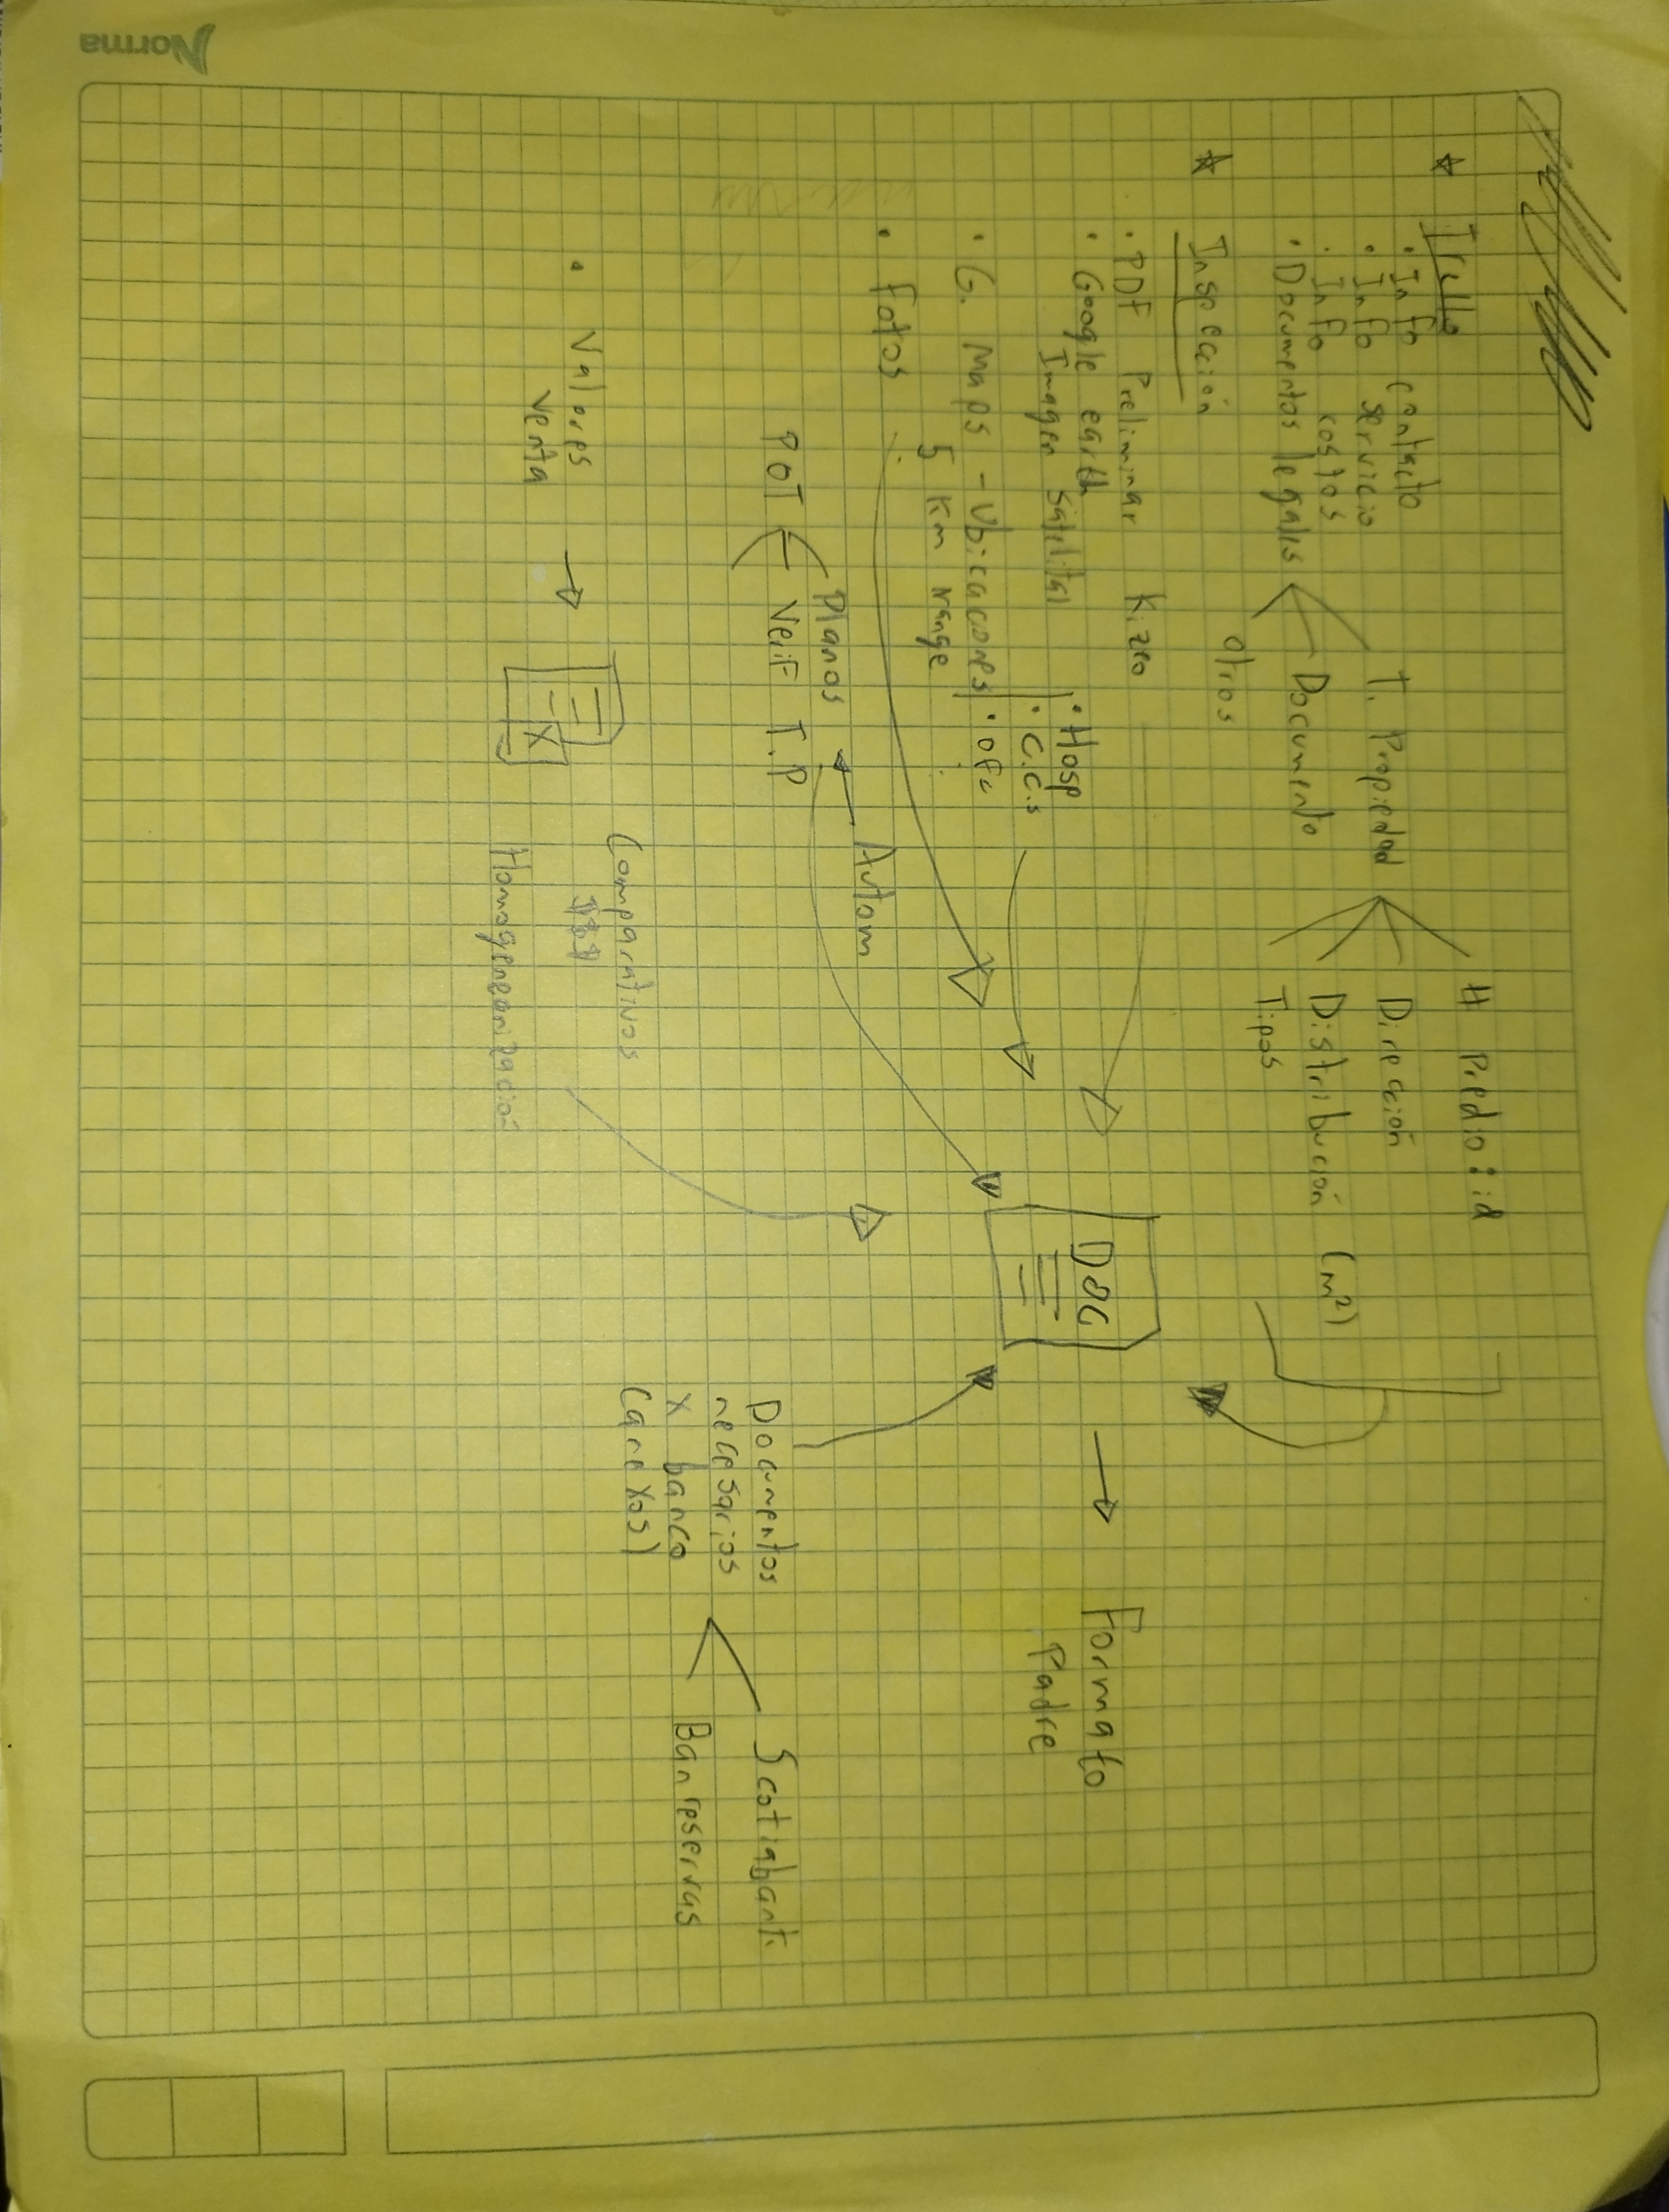 Norma
Trello
• Info contacto
• Info servicio
• Info costos
• Documentos legales
T. Propiedad
Documento
otros
# Predio : id
Dirección
Distribución (m²)
Tipos
Inspección
• PDF Preliminar Kizeo
• Google earth
Imagen Satelital
• G. Maps - Ubicacones
5 Km range
• Hosp
• C.C.s
• Ofc
• Fotos
Planos
Autom
POT
Verif T.P
• Valores
venta
X
Comparativos
Homogeneanización
DOC
Formato
Padre
Documentos
necesarios
x banco
(anexos)
Scotiabank
Banreservas